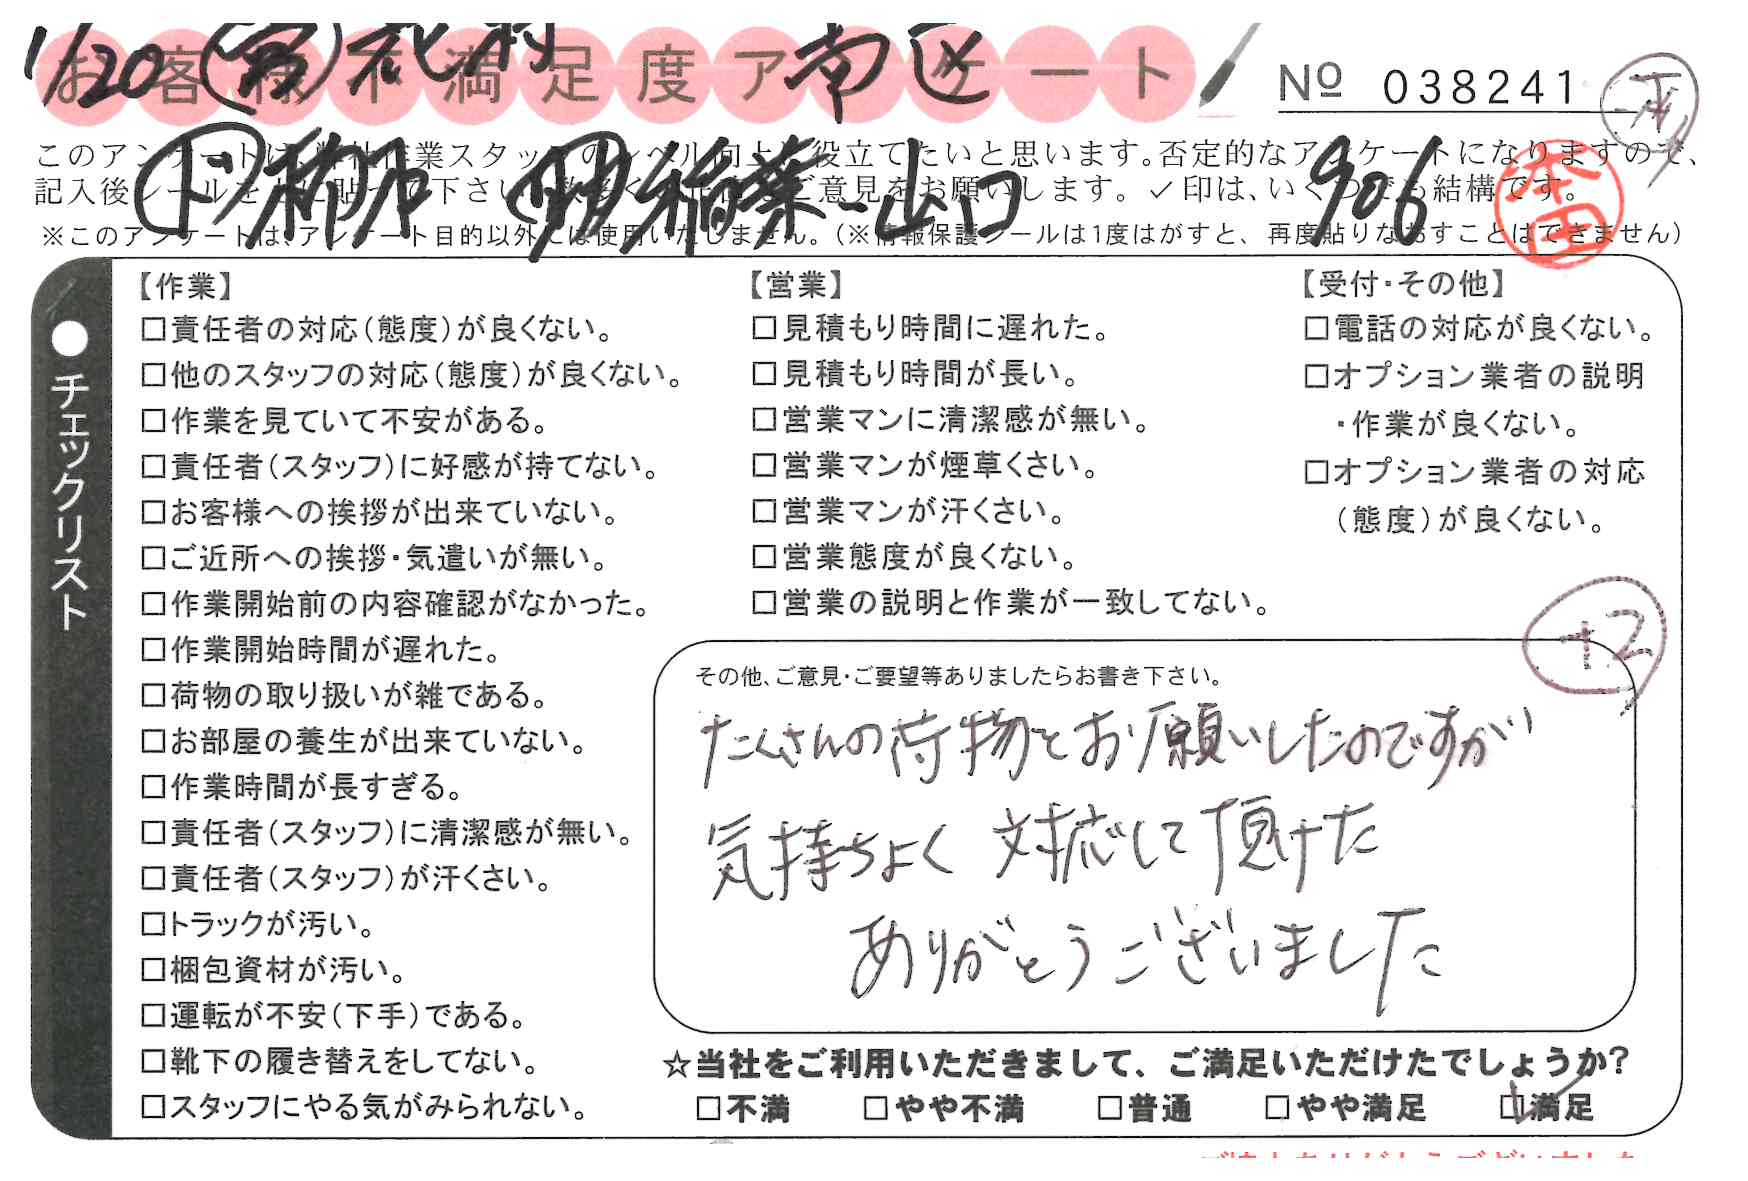 1/20 (営) 南区
お客様不満足度アンケート
No 038241
このアンケートは、弊社作業スタッフのレベル向上に役立てたいと思います。否定的なアンケートになりますので、
記入後シールを上に貼って下さい。数多くの正直なご意見をお願いします。✓印は、いくつでも結構です。
稲葉-山口 906
本田
※このアンケートは、アンケート目的以外には使用いたしません。(※情報保護シールは1度はがすと、再度貼りなおすことはできません)
●チェックリスト
【作業】
□責任者の対応(態度)が良くない。
□他のスタッフの対応(態度)が良くない。
□作業を見ていて不安がある。
□責任者(スタッフ)に好感が持てない。
□お客様への挨拶が出来ていない。
□ご近所への挨拶・気遣いが無い。
□作業開始前の内容確認がなかった。
□作業開始時間が遅れた。
□荷物の取り扱いが雑である。
□お部屋の養生が出来ていない。
□作業時間が長すぎる。
□責任者(スタッフ)に清潔感が無い。
□責任者(スタッフ)が汗くさい。
□トラックが汚い。
□梱包資材が汚い。
□運転が不安(下手)である。
□靴下の履き替えをしてない。
□スタッフにやる気がみられない。
【営業】
□見積もり時間に遅れた。
□見積もり時間が長い。
□営業マンに清潔感が無い。
□営業マンが煙草くさい。
□営業マンが汗くさい。
□営業態度が良くない。
□営業の説明と作業が一致してない。
【受付・その他】
□電話の対応が良くない。
□オプション業者の説明
・作業が良くない。
□オプション業者の対応
(態度)が良くない。
+2
その他、ご意見・ご要望等ありましたらお書き下さい。
たくさんの荷物をお願いしたのですが
気持ちよく 対応して頂けた
ありがとうございました
☆当社をご利用いただきまして、ご満足いただけたでしょうか?
□不満 □やや不満 □普通 □やや満足 ☑満足